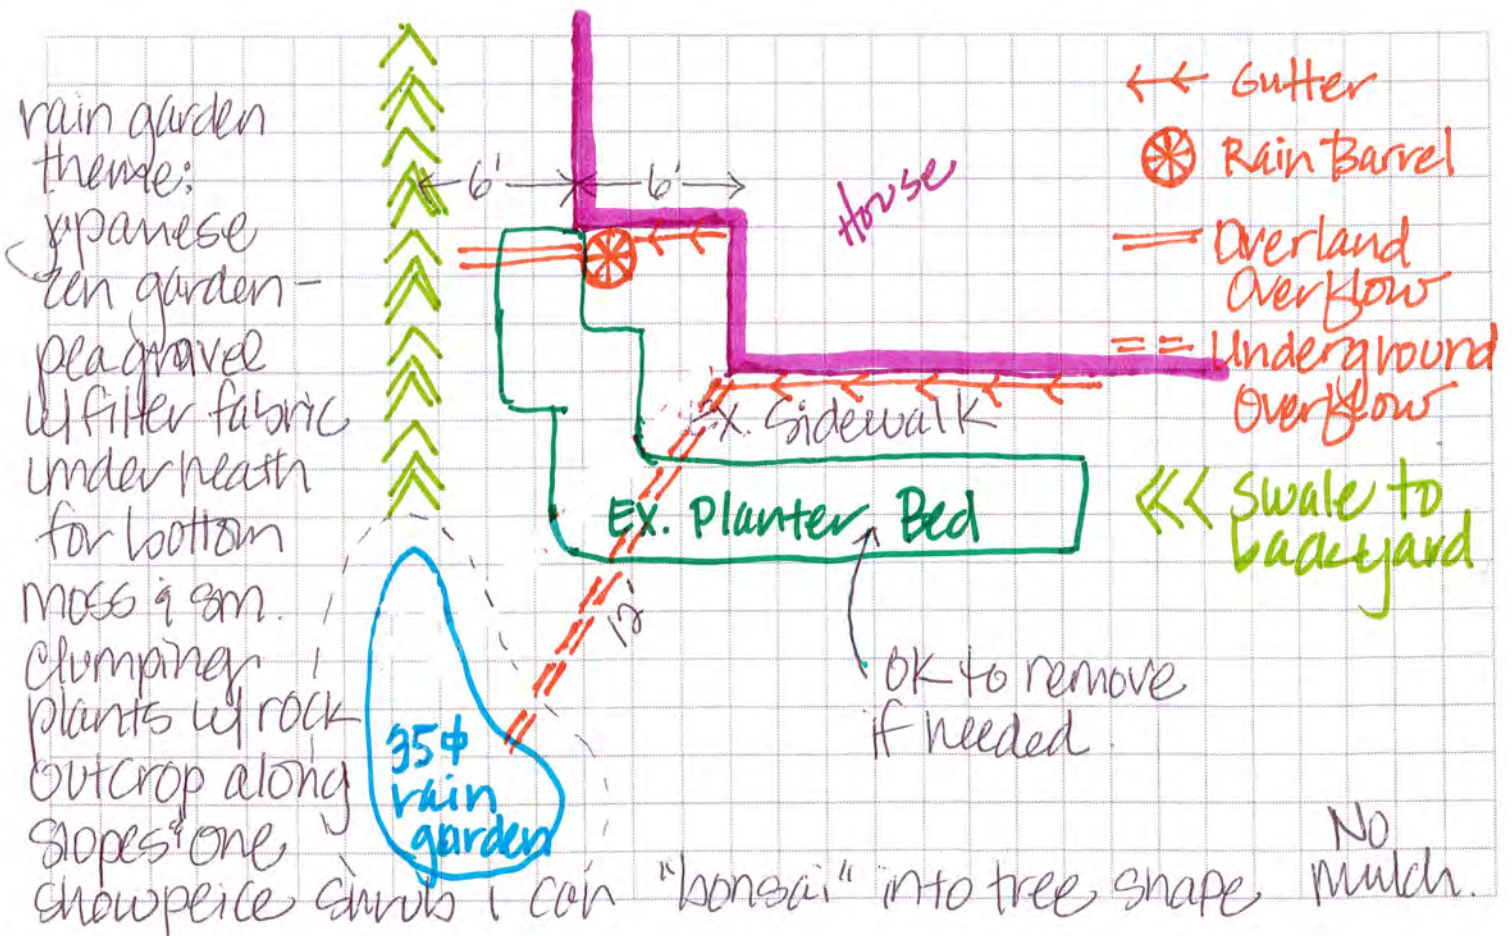 rain garden
theme:
japanese
zen garden -
pea gravel
w/ filter fabric
underneath
for bottom
moss & sm.
clumping
plants w/ rock
outcrop along
slopes & one
showpeice shrub I can "bonsai" into tree shape
No
mulch.
6'
6'
House
Ex. Sidewalk
Ex. Planter Bed
12'
OK to remove
if needed.
35ϕ
rain
garden
Gutter
Rain Barrel
Overland
Overflow
Underground
Overflow
Swale to
backyard